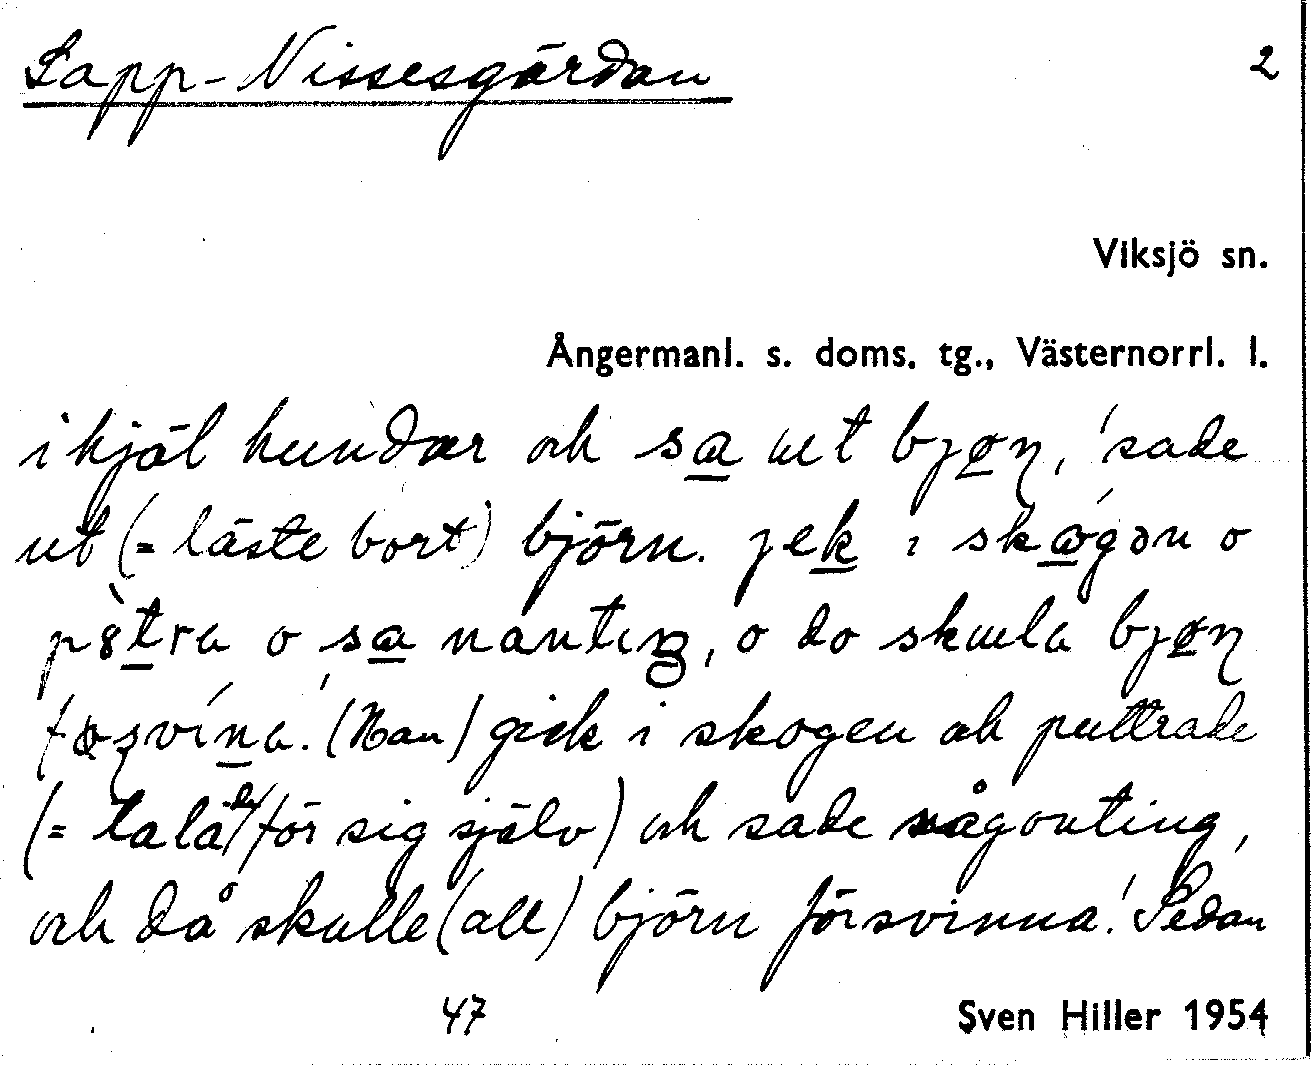 Lapp-Nissesgärdan 2
Viksjö sn.
Ångermanl. s. doms. tg., Västernorrl. l.
ihjäl hundar och sa ut bjøn, 'sade
ut (= läste bort) björn. jek i skógən o
pètra o sa nantiŋ, o do skula bjøn
svína.' (Han) gick i skogen och puttrade
(= talade för sig själv) och sade någonting,
och då skulle (all) björn försvinna.' Sedan
47 Sven Hiller 1954